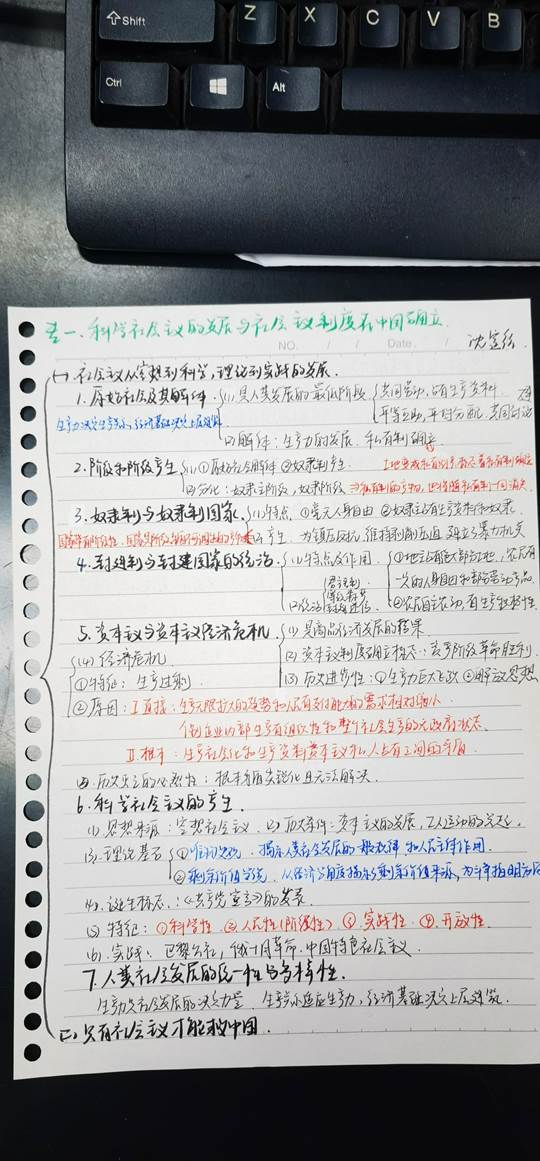 Shift
Z X C V B
Ctrl Alt
一、科学社会主义的发展与社会主义制度在中国确立
NO. Date.
(一) 社会主义从空想到科学,理论到实践的发展
1. 原始社会及其解体 (1) 是人类发展的最低阶段 共同劳动,占有生产资料
平等互助,平均分配,共同
生产力决定生产关系,经济基础决定上层建筑
(2) 解体:生产力的发展,私有制确立
2. 阶级和阶级产生 (1) ①原始社会解体 ②奴隶制产生
(2) 分化:奴隶主阶级,奴隶阶级
3. 奴隶制与奴隶制国家 (1) 特点 ①毫无人身自由 ②奴隶主占有生产资料和奴隶
产生:为镇压反抗,维持剥削 建立了暴力机关
4. 封建制与封建国家的统治 (1) 特点及作用 ①地主占有绝大部分土地,农民有
一定的人身自由和部分劳动产品
君主专制
(2) 统治
②农民自主劳动,有生产积极性
5. 资本主义与资本主义经济危机 (1) 是商品经济发展的结果
(4) 经济危机 (2) 资本主义制度确立标志:资产阶级革命胜利
①特征:生产过剩 (3) 历史进步性:①生产力巨大飞跃 ②解放思想
②原因:I 直接:生产无限扩大的趋势和人民有支付能力的需求相对缩小
个别企业内部生产有组织性和整个社会生产的无政府状态
II 根本:生产社会化和生产资料资本主义私人占有之间的矛盾
历史灭亡的必然性:根本矛盾尖锐化且无法解决
6. 科学社会主义的产生
(1) 思想来源:空想社会主义 (2) 历史条件:资本主义的发展,工人运动的兴起
(3) 理论基石 ①唯物史观:揭示人类社会发展的一般规律和人民主体作用
②剩余价值学说:从经济角度揭示了剩余价值来源,为斗争指明方向
(4) 诞生标志:《共产党宣言》的发表
(5) 特征:①科学性 ②人民性(阶级性) ③实践性 ④开放性
(6) 实践:巴黎公社,俄十月革命,中国特色社会主义
7. 人类社会发展的统一性与多样性
生产力是社会发展的决定力量 生产关系适应生产力,经济基础决定上层建筑
(二) 只有社会主义才能救中国